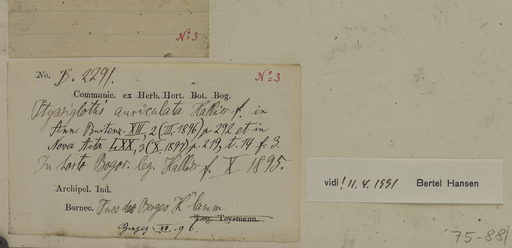 No. 3
No. B. 2291. No. 3
Communic. ex Herb. Hort. Bot. Bog.
Ptyssiglottis auriculata Hallier f. in
Ann. Buitenz. XIII, 2 (III, 1896) p. 292 et in
Nova Acta LXX, 3 (X. 1897) p. 219, t. 14 f. 3.
In horto Bogor. leg. Hallier f. X 1895.
Archipel. Ind.
Borneo.
Leg. Teysmann.
vidi! 11.4.1991 Bertel Hansen
75-88